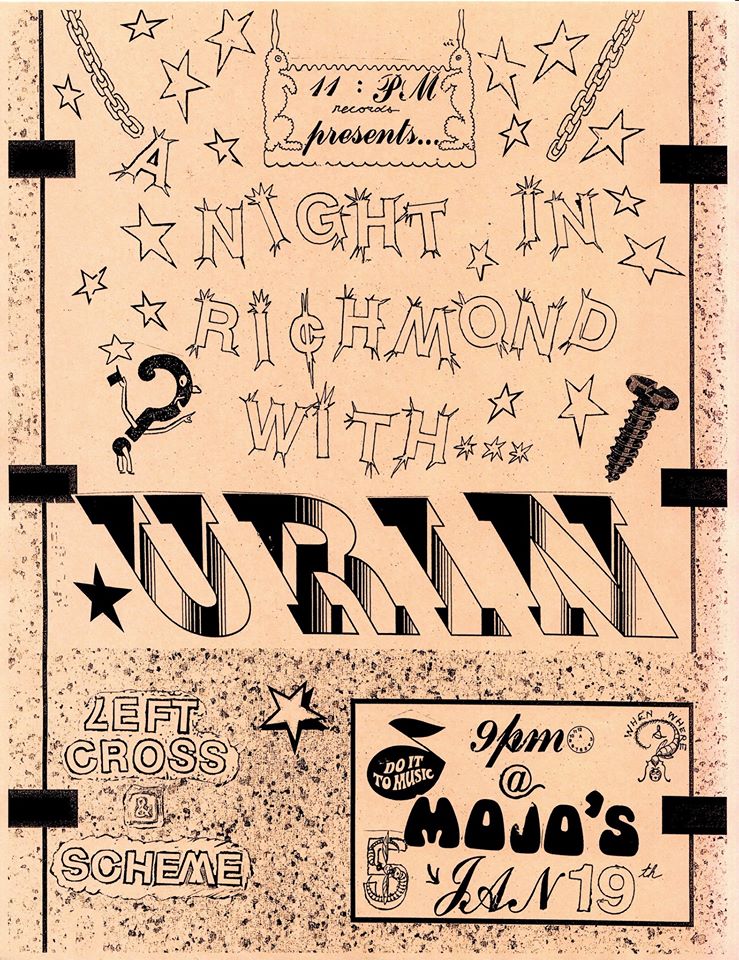 11 : PM
records
presents...
A
NIGHT IN
RICHMOND
WITH***
URIN
LEFT
CROSS
&
SCHEME
DO IT
TO MUSIC
9pm
@
MOJO'S
5
JAN 19th
WHEN WHERE